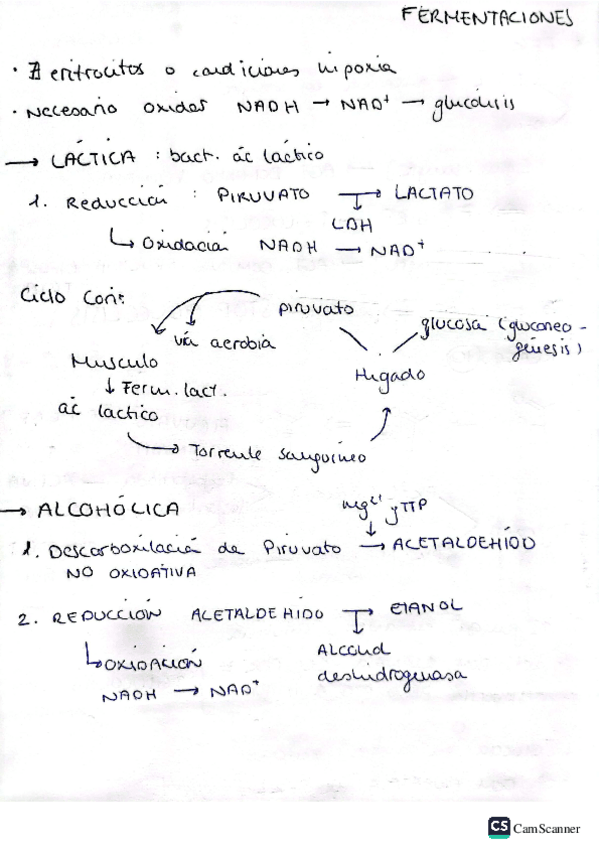 FERMENTACIONES
· ∄ eritrocitos o condiciones hipoxia
· Necesario oxidar NADH → NAD⁺ → glucólisis
→ LÁCTICA : bact. ác láctico
1. Reducción : PIRUVATO → LACTATO
LDH
↳ Oxidación NADH → NAD⁺
Ciclo Cori:
piruvato
glucosa (gluconeo-
génesis)
vía aerobia
Músculo
Hígado
↓ Ferm. lact.
ác láctico
→ Torrente sanguíneo
→ ALCOHÓLICA
Mg²⁺ y TTP
1. Descarboxilación de Piruvato → ACETALDEHÍDO
NO OXIDATIVA
2. REDUCCIÓN ACETALDEHIDO → ETANOL
Alcohol
deshidrogenasa
↳ OXIDACIÓN
NADH → NAD⁺
CS CamScanner